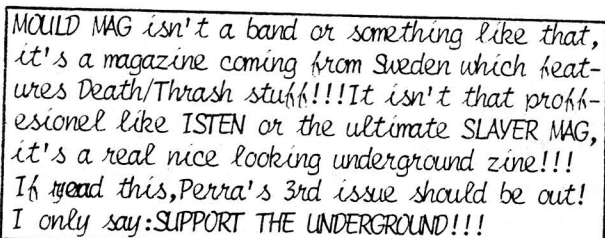 MOULD MAG isn't a band or something like that,
it's a magazine coming from Sweden which feat-
ures Death/Thrash stuff!!!It isn't that proff-
esionel like ISTEN or the ultimate SLAYER MAG,
it's a real nice looking underground zine!!!
If read this,Perra's 3rd issue should be out!
I only say:SUPPORT THE UNDERGROUND!!!